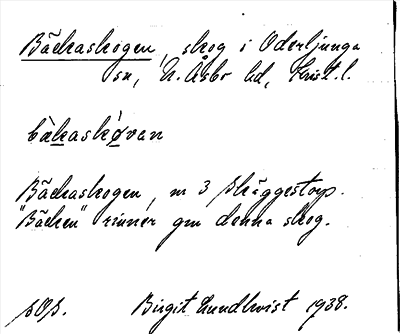 Bäckaskogen, skog i Oderljunga
sn, N. Åsbo hd, Krist. l.
bàkaskøvan
Bäckaskogen, m 3 Skäggestorp.
"Bäcken" rinner gm denna skog.
Birgit Lundkvist 1938.